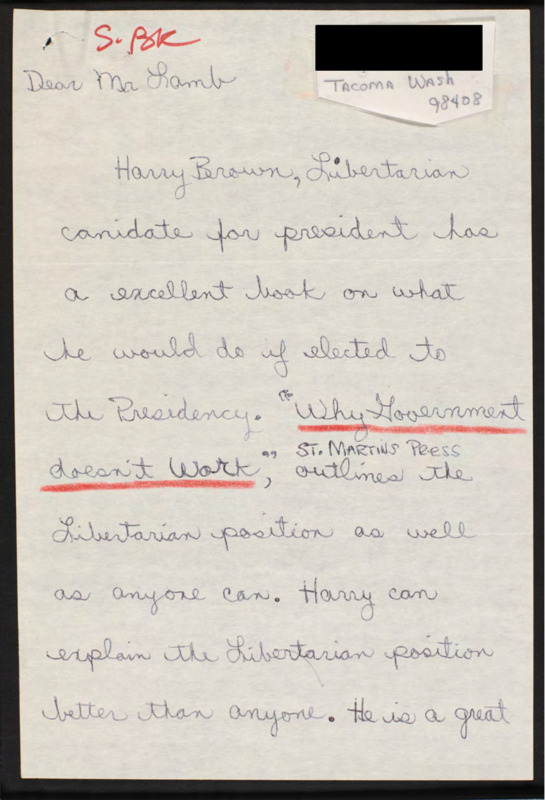 S. BK
TACOMA WASH
98408
Dear Mr Lamb
Harry Brown, Libertarian
canidate for president has
a excellent book on what
he would do if elected to
the Presidency. "Why Government
doesn't Work," ST. MARTINS PRESS
outlines the
Libertarian position as well
as anyone can. Harry can
explain the Libertarian position
better than anyone. He is a great